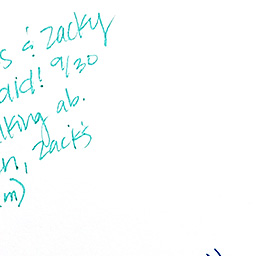 s & zacky
did! 9/30
lking ab.
n, zack's
m)